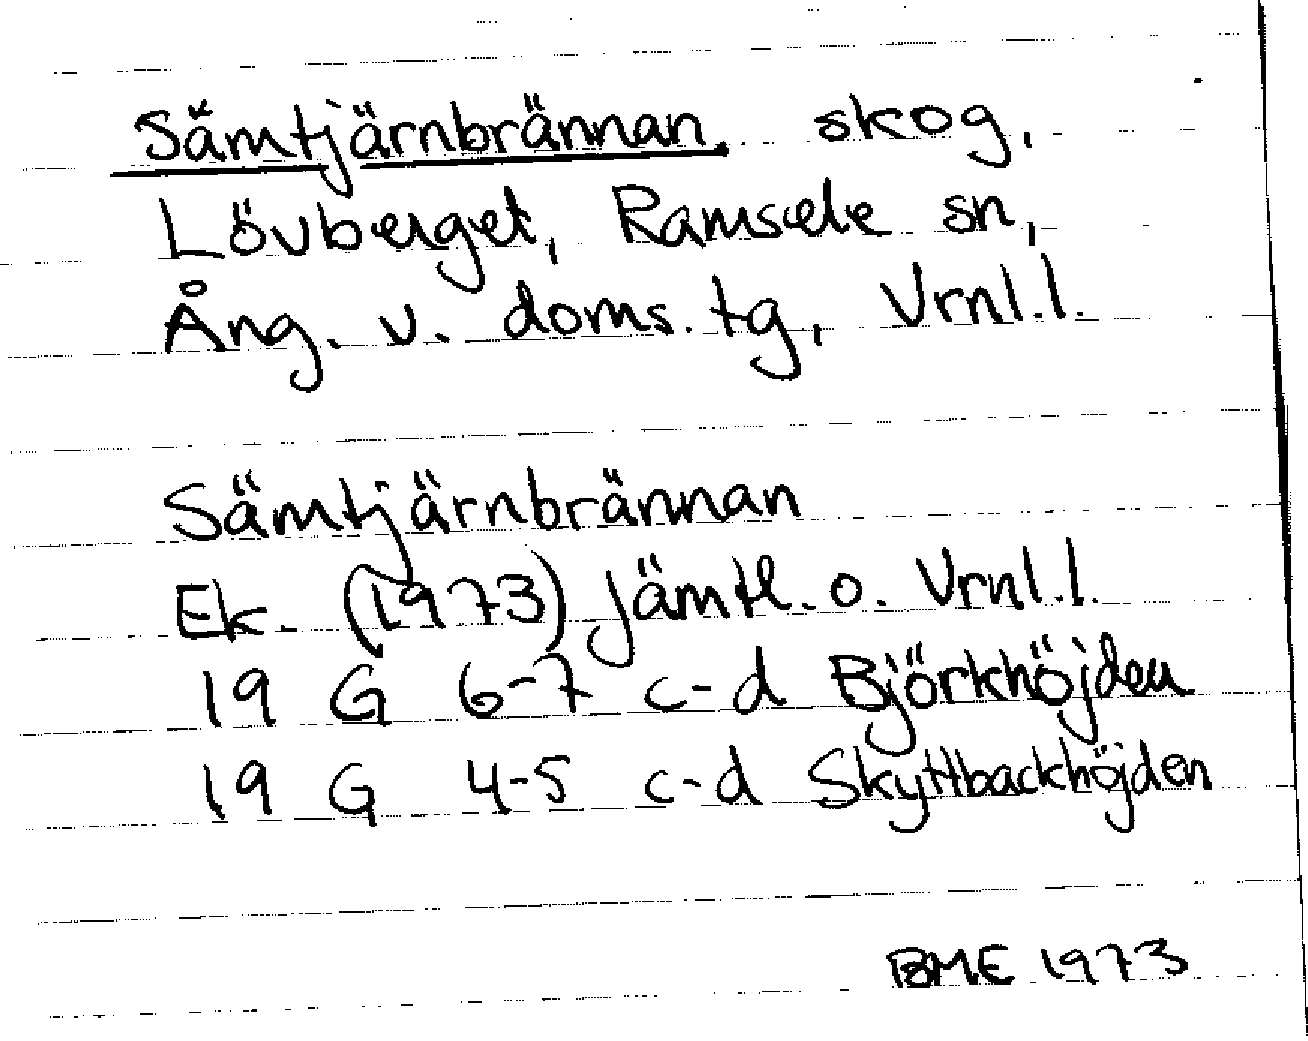 Sämtjärnbrännan, skog,
Lövberget, Ramsele sn,
Ång. v. doms. tg, Vrnl.l.
Sämtjärnbrännan
Ek. (1973) Jämtl. o. Vrnl.l.
19 G 6-7 c-d Björkhöjden
19 G 4-5 c-d Skyttbackhöjden
BME 1973